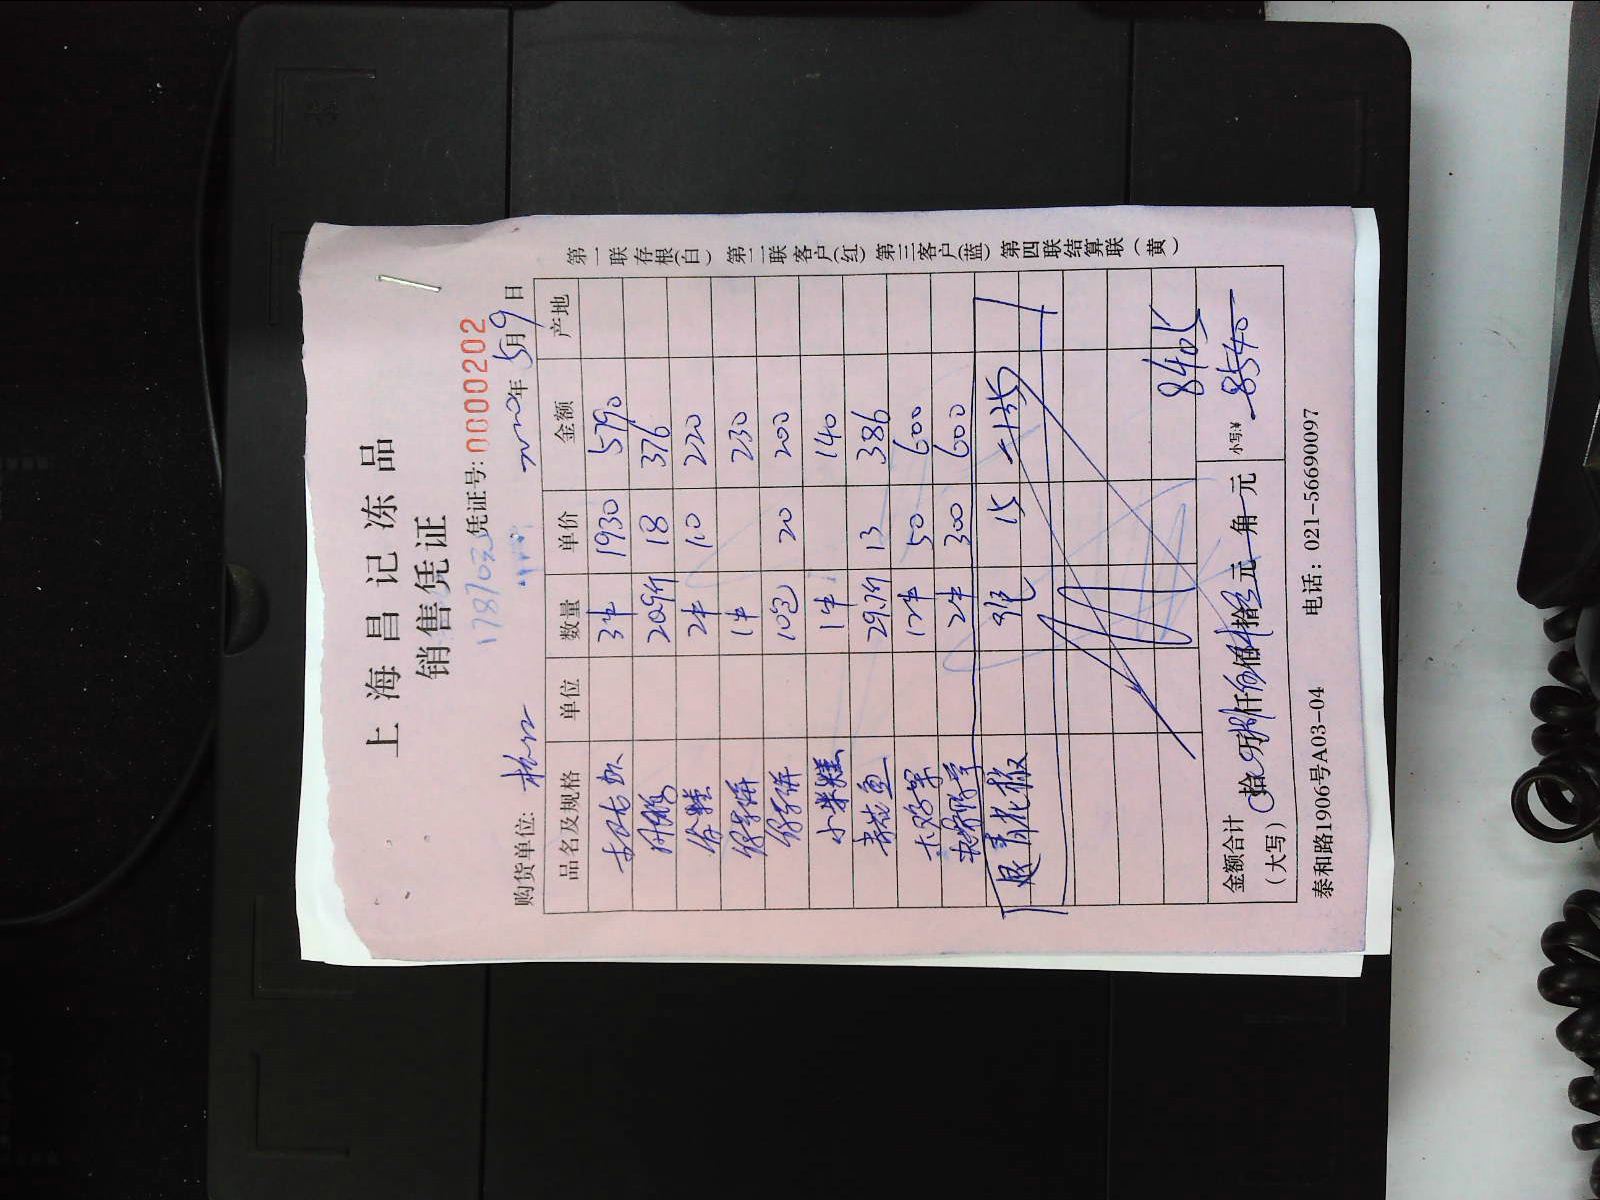 上海昌记冻品
销售凭证
17870元 凭证号: 0000202
购货单位: 2020年 5月 9日
品名及规格 单位 数量 单价 金额 产地
3件 1930 5790
20.9斤 18 376
2件 110 220
1件 230
10包 20 200
小米糕 1件 140
29.7斤 13 386
12件 50 600
2件 300 600
退青花椒 9包 15 -135
8405
金额合计
(大写) 拾 万 捌仟 伍佰 肆拾 元 角 元 小写:¥ 8540
泰和路1906号A03-04 电话: 021-56690097
第一联存根(白) 第二联客户(红) 第三客户(蓝) 第四联结算联(黄)